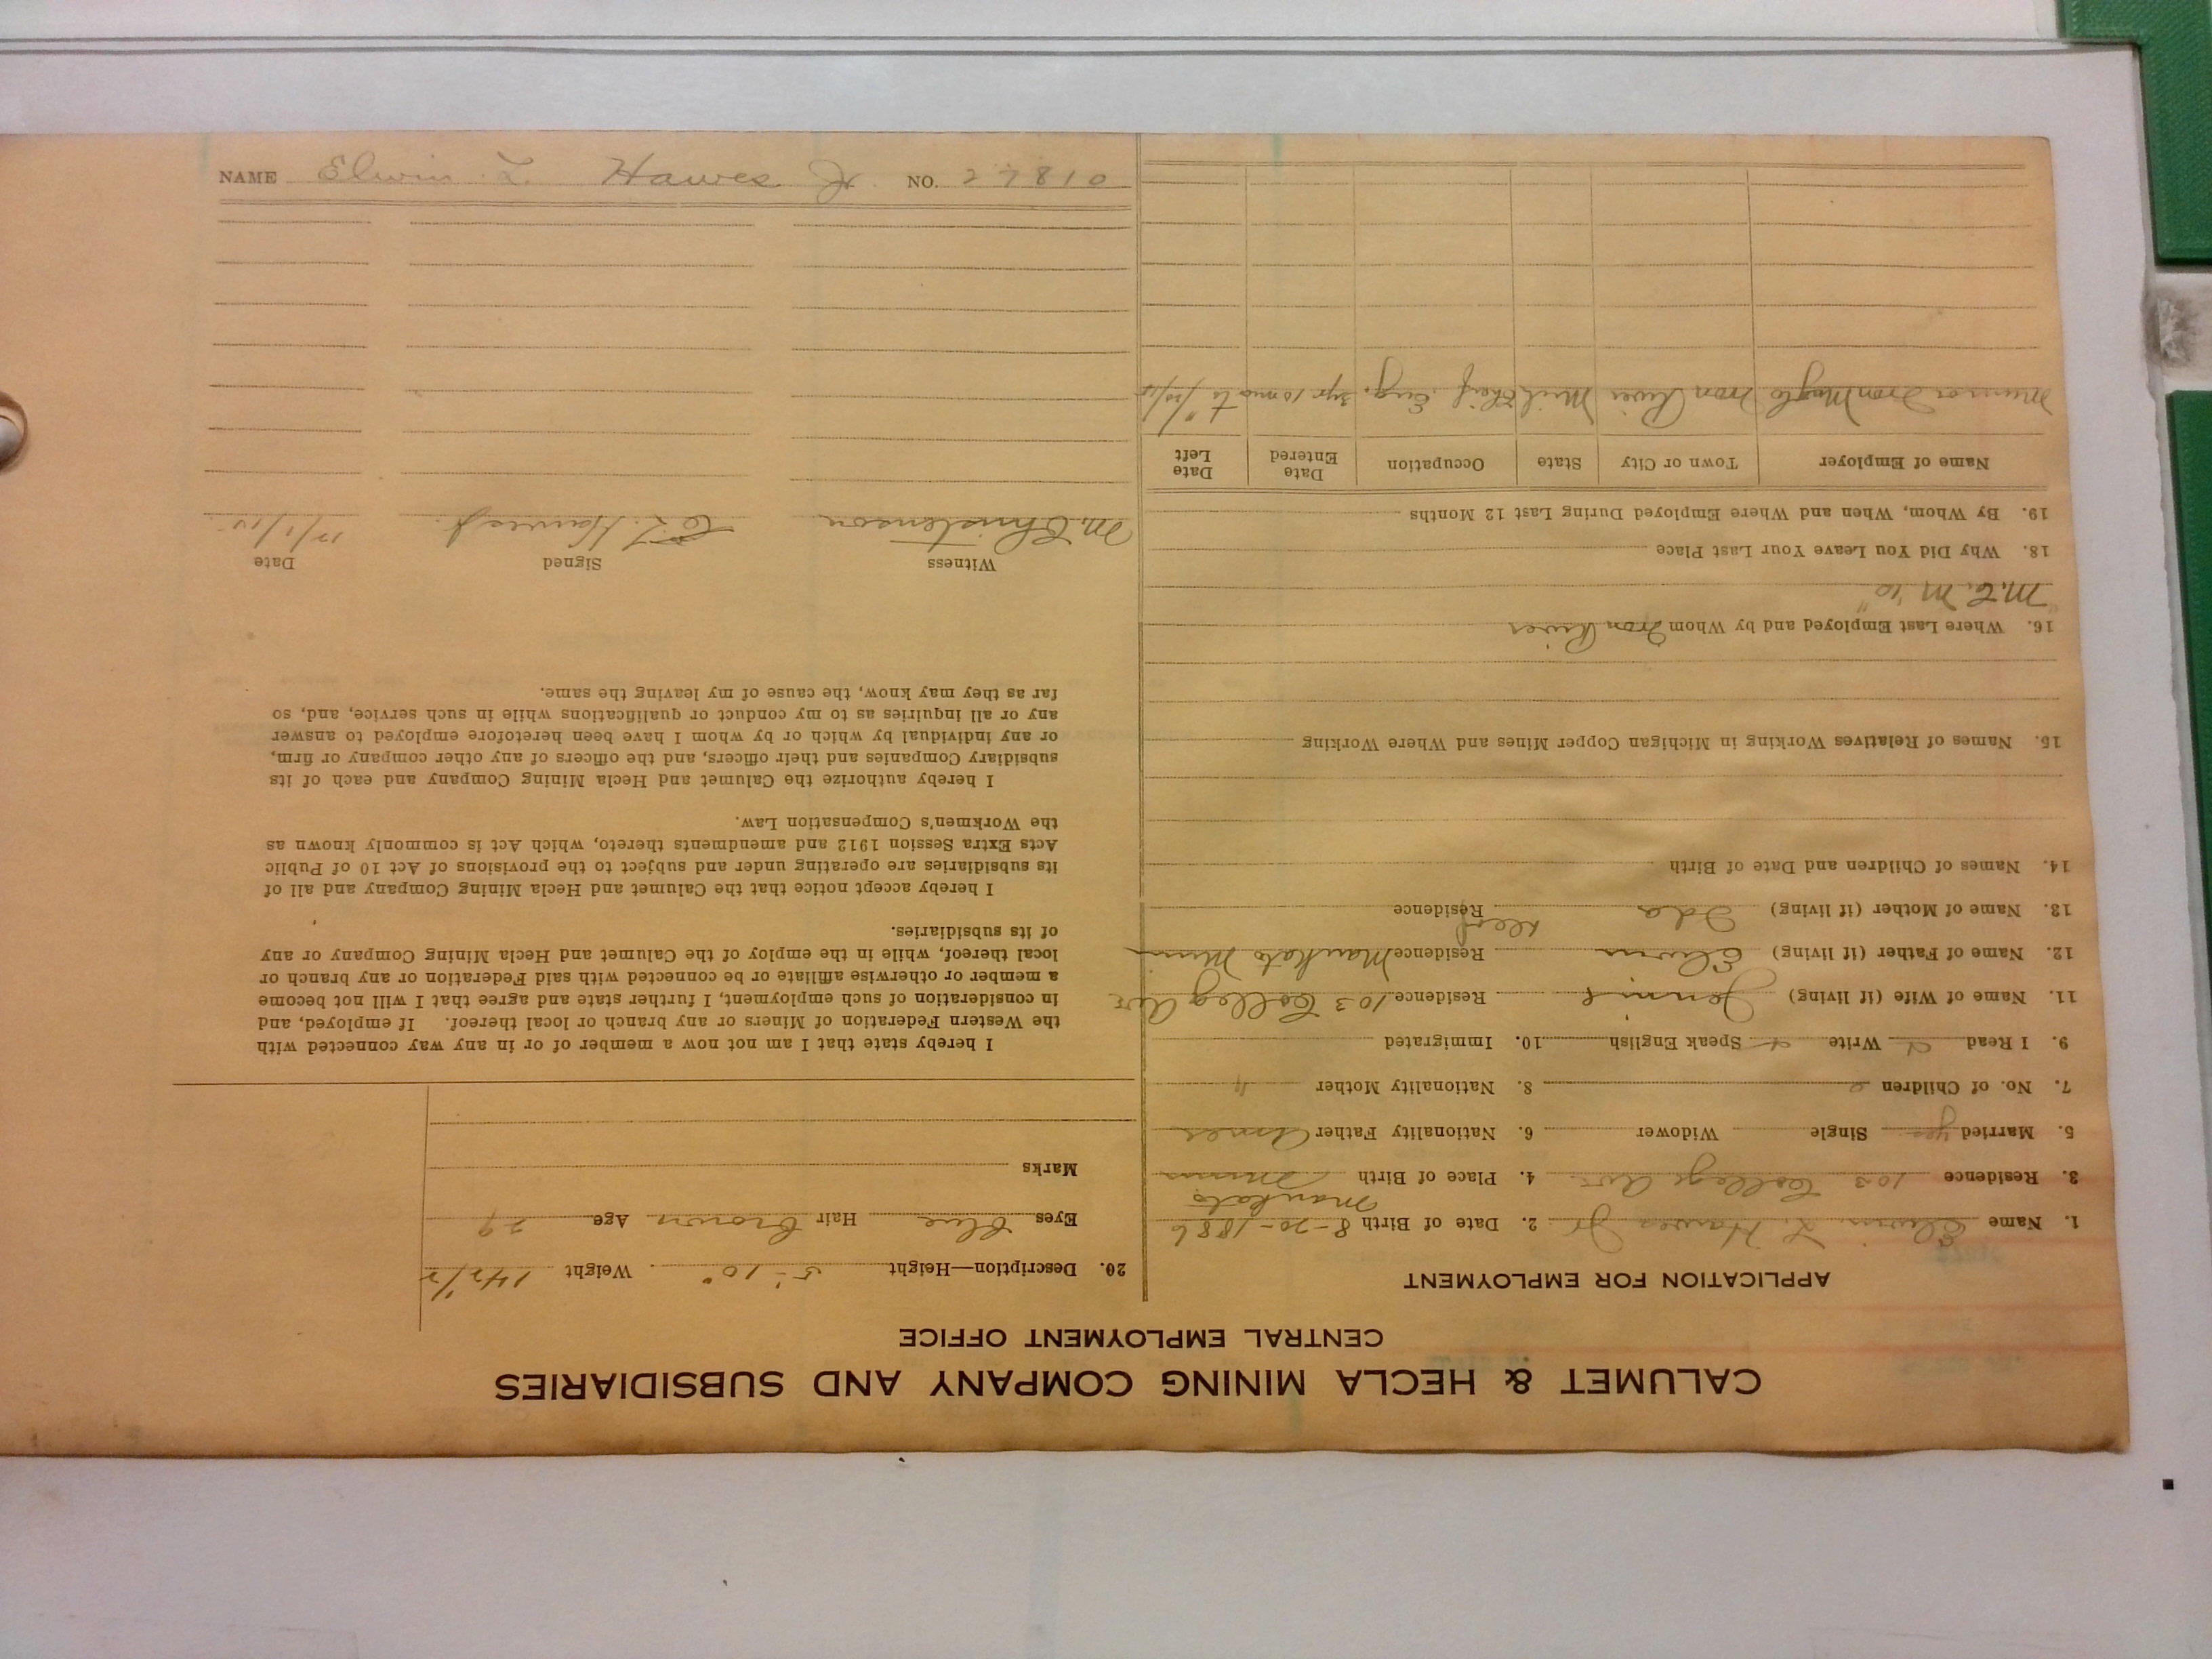 CALUMET & HECLA MINING COMPANY AND SUBSIDIARIES
CENTRAL EMPLOYMENT OFFICE
APPLICATION FOR EMPLOYMENT
1. Name Elwin L. Hawes Jr 2. Date of Birth 8-20-1886
Mankato
3. Residence 103 College Ave. 4. Place of Birth Minn
5. Married yes Single Widower 6. Nationality Father Amer
7. No. of Children 0 8. Nationality Mother "
9. I Read Write Speak English 10. Immigrated
11. Name of Wife (if living) Residence 103 College Ave
12. Name of Father (if living) Elwin Residence Mankato Minn
13. Name of Mother (if living) Ida Residence
14. Names of Children and Date of Birth
15. Names of Relatives Working in Michigan Copper Mines and Where Working
16. Where Last Employed and by Whom Iron River
18. Why Did You Leave Your Last Place
19. By Whom, When and Where Employed During Last 12 Months
Name of Employer Town or City State Occupation Date Entered Date Left
Iron Iron River Mich Eng. 3 yr 10 mos to
20. Description—Height 5' 10" Weight 142 1/2
Eyes Blue Hair Brown Age 29
Marks
I hereby state that I am not now a member of or in any way connected with
the Western Federation of Miners or any branch or local thereof. If employed, and
in consideration of such employment, I further state and agree that I will not become
a member or otherwise affiliate or be connected with said Federation or any branch or
local thereof, while in the employ of the Calumet and Hecla Mining Company or any
of its subsidiaries.
I hereby accept notice that the Calumet and Hecla Mining Company and all of
its subsidiaries are operating under and subject to the provisions of Act 10 of Public
Acts Extra Session 1912 and amendments thereto, which Act is commonly known as
the Workmen's Compensation Law.
I hereby authorize the Calumet and Hecla Mining Company and each of its
subsidiary Companies and their officers, and the officers of any other company or firm,
or any individual by which or by whom I have been heretofore employed to answer
any or all inquiries as to my conduct or qualifications while in such service, and, so
far as they may know, the cause of my leaving the same.
Witness Signed Date
M. Christenson E. L. Hawes Jr.
NAME Elwin L. Hawes Jr. NO. 27810